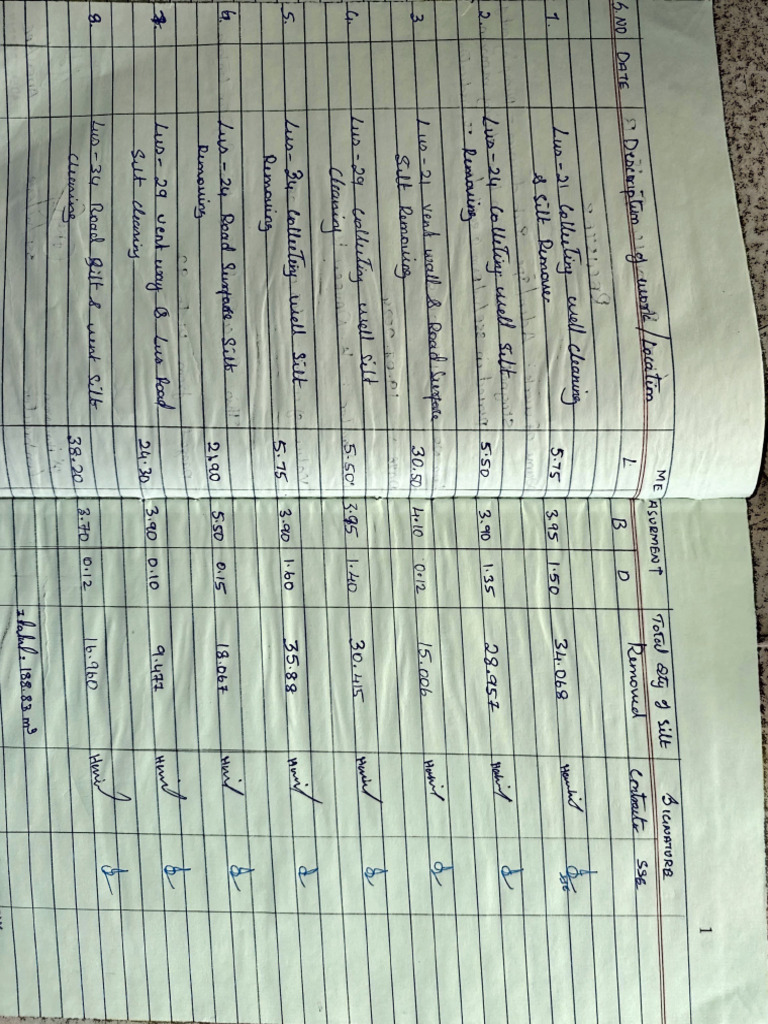 1
MEASURMENT Total Qty of Silt SIGNATURE
S.NO DATE Description of work/Location L B D Removed Contractor SSE
1. Lus-21 Collecting well cleaning 5.75 3.95 1.50 34.068
& Silt Remover
2. Lus-24 Colleting well Silt 5.50 3.90 1.35 28.957
Removing
3 Lus-21 vent wall & Road Surface 30.50 4.10 0.12 15.006
Silt Removing
4. Lus-29 Collecting well Silt 5.50 3.95 1.40 30.415
Cleaning
5. Lus-34 Collecting well Silt 5.75 3.90 1.60 35.88
Removing
6. Lus-24 Road Surface Silt 21.90 5.50 0.15 18.067
Removing
7. Lus-29 vent way & Lus Road 24.30 3.90 0.10 9.477
Silt cleaning
8. Lus-34 Road Silt & vent Silt 38.20 3.70 0.12 16.960
cleaning
Total = 188.83 m³